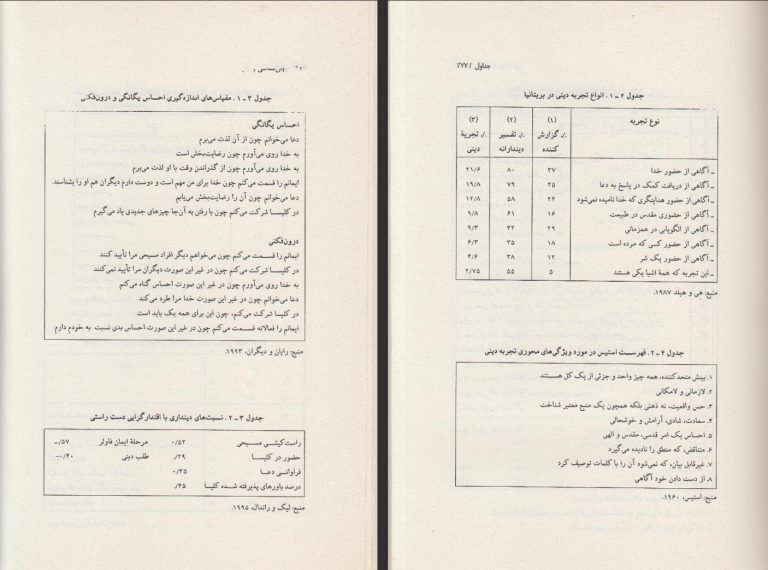 جداول / ۳۷۷
جدول ۴ ـ ۱. انواع تجربه دینی در بریتانیا
نوع تجربه (۱) (۲) (۳)
٪ گزارش ٪ تفسیر ٪ تجربهٔ
کننده دیندارانه دینی
ـ آگاهی از حضور خدا ۲۷ ۸۰ ۲۱/۶
ـ آگاهی از دریافت کمک در پاسخ به دعا ۲۵ ۷۹ ۱۹/۸
ـ آگاهی از حضور هدایتگری که خدا نامیده نمی‌شود ۲۲ ۵۸ ۱۲/۸
ـ آگاهی از حضوری مقدس در طبیعت ۱۶ ۶۱ ۹/۸
ـ آگاهی از الگویابی در همزمانی ۲۹ ۳۲ ۹/۳
ـ آگاهی از حضور کسی که مرده است ۱۸ ۳۵ ۶/۳
ـ آگاهی از حضور یک شر ۱۲ ۳۸ ۴/۶
ـ این تجربه که همهٔ اشیا یکی هستند ۵ ۵۵ ۲/۷۵
منبع: هی و هیلد ۱۹۸۷.
جدول ۴ ـ ۲. فهرست استیس در مورد ویژگی‌های محوری تجربه دینی
۱. بینش متحدکننده، همه چیز واحد و جزئی از یک کل هستند
۲. لازمانی و لامکانی
۳. حس واقعیت، نه ذهنی بلکه همچون یک منبع معتبر شناخت
۴. سعادت، شادی، آرامش و خوشحالی
۵. احساس یک امر قدسی، مقدس و الهی
۶. متناقض، که منطق را نادیده می‌گیرد
۷. غیرقابل بیان، که نمی‌شود آن را با کلمات توصیف کرد
۸. از دست دادن خود آگاهی
منبع: استیس، ۱۹۶۰.
جدول ۳ ـ ۱. مقیاس‌های اندازه‌گیری احساس یگانگی و درون‌فکنی
احساس یگانگی
دعا می‌خوانم چون از آن لذت می‌برم
به خدا روی می‌آورم چون رضایت‌بخش است
به خدا روی می‌آورم چون از گذراندن وقت با او لذت می‌برم
ایمانم را قسمت می‌کنم چون خدا برای من مهم است و دوست دارم دیگران هم او را بشناسند.
دعا می‌خوانم چون آن را رضایت‌بخش می‌یابم
در کلیسا شرکت می‌کنم چون با رفتن به آن‌جا چیزهای جدیدی یاد می‌گیرم
درون‌فکنی
ایمانم را قسمت می‌کنم چون می‌خواهم دیگر افراد مسیحی مرا تأیید کنند
در کلیسا شرکت می‌کنم چون در غیر این صورت دیگران مرا تأیید نمی‌کنند
به خدا روی می‌آورم چون در غیر این صورت احساس گناه می‌کنم
دعا می‌خوانم چون در غیر این صورت خدا مرا طرد می‌کند
در کلیسا شرکت می‌کنم، چون این برای همه یک باید است
ایمانم را فعالانه قسمت می‌کنم چون در غیر این صورت احساس بدی نسبت به خودم دارم
منبع: رایان و دیگران، ۱۹۹۳.
جدول ۳ ـ ۲. نسبت‌های دینداری با اقتدارگرایی دست راستی
راست‌کیشی مسیحی ۰/۵۲ مرحلهٔ ایمان فاولر ـ/۵۷
حضور در کلیسا /۲۹ طلب دینی ـ۰/۴۰
فراوانی دعا ۰/۳۵
درصد باورهای پذیرفته شده کلیسا /۴۵
منبع: لیک و راندال، ۱۹۹۵.